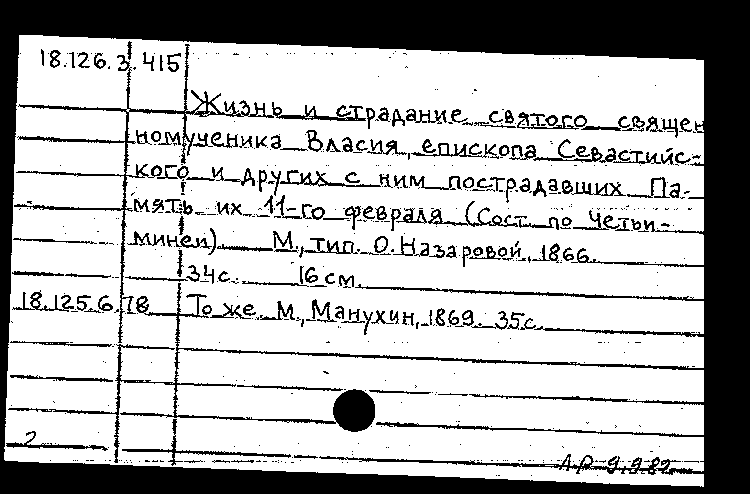 18.126.3.415
Жизнь и страдание святого священ
номученика Власия, епископа Севастийс-
кого и других с ним пострадавших. Па-
мять их 11-го февраля (Сост. по Четьи-
минеи) М., тип. О. Назаровой, 1866.
34с. 16 см.
18.125.6.78 То же. М., Манухин, 1869. 35с.
2
АР 9.9.82